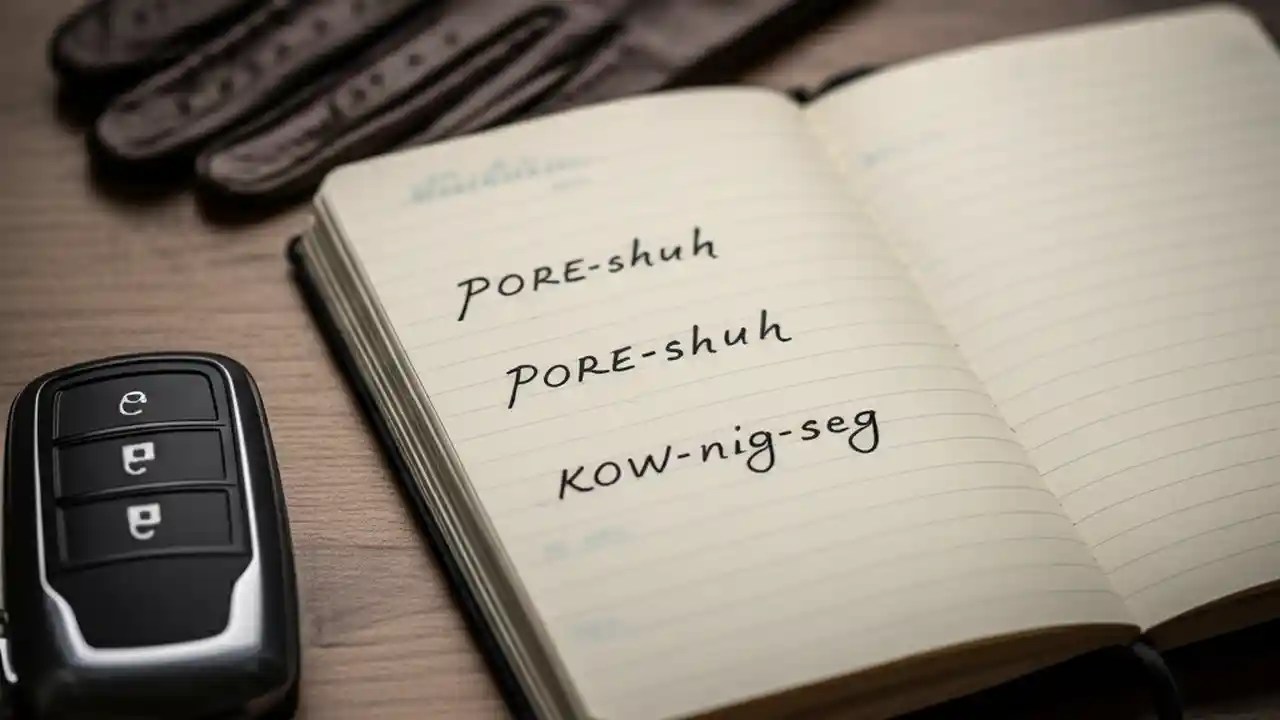 PORE-shuh
PORE-shuh
KOW-nig-seg